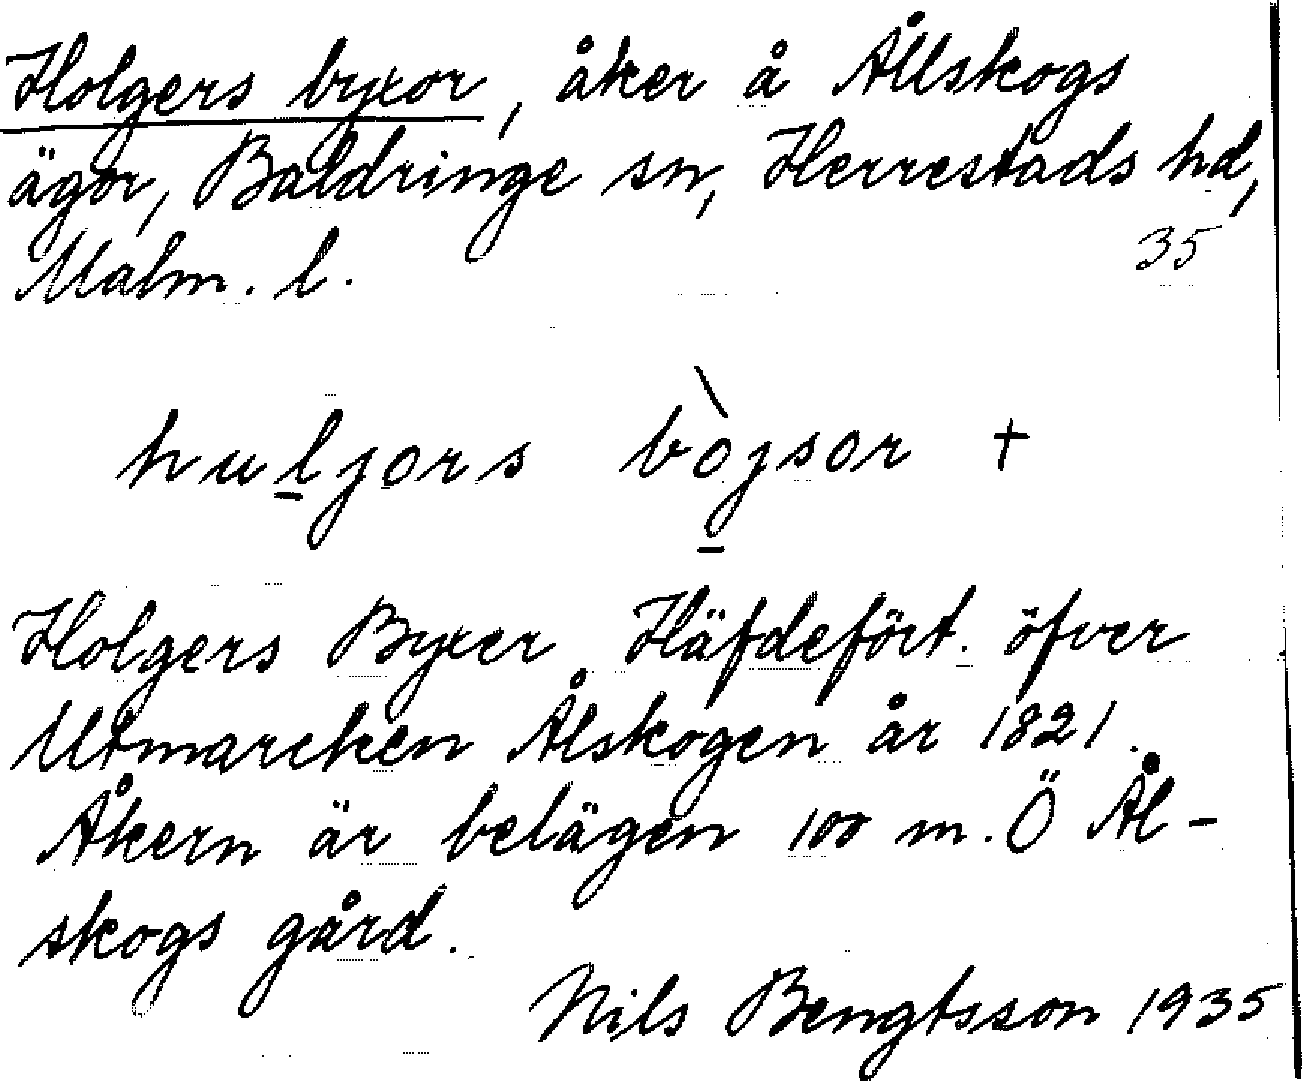 Holgers byxor, åker å Ållskogs
ägor, Baldringe sn, Herrestads hd,
Malm. l. 35
huljors bòjsor +
Holgers Byxer Häfdefört. öfver
Utmarcken Ålskogen år 1821.
Åkern är belägen 100 m. Ö Ål-
skogs gård.
Nils Bengtsson 1935